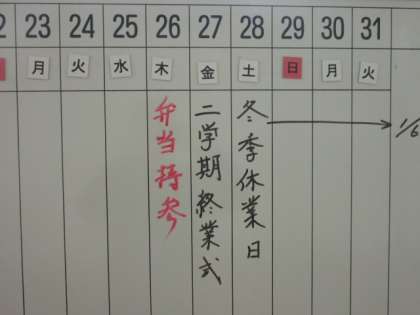 2 23 24 25 26 27 28 29 30 31
月 火 水 木 金 土 日 月 火
弁当持参
二学期終業式
冬季休業日
1/6